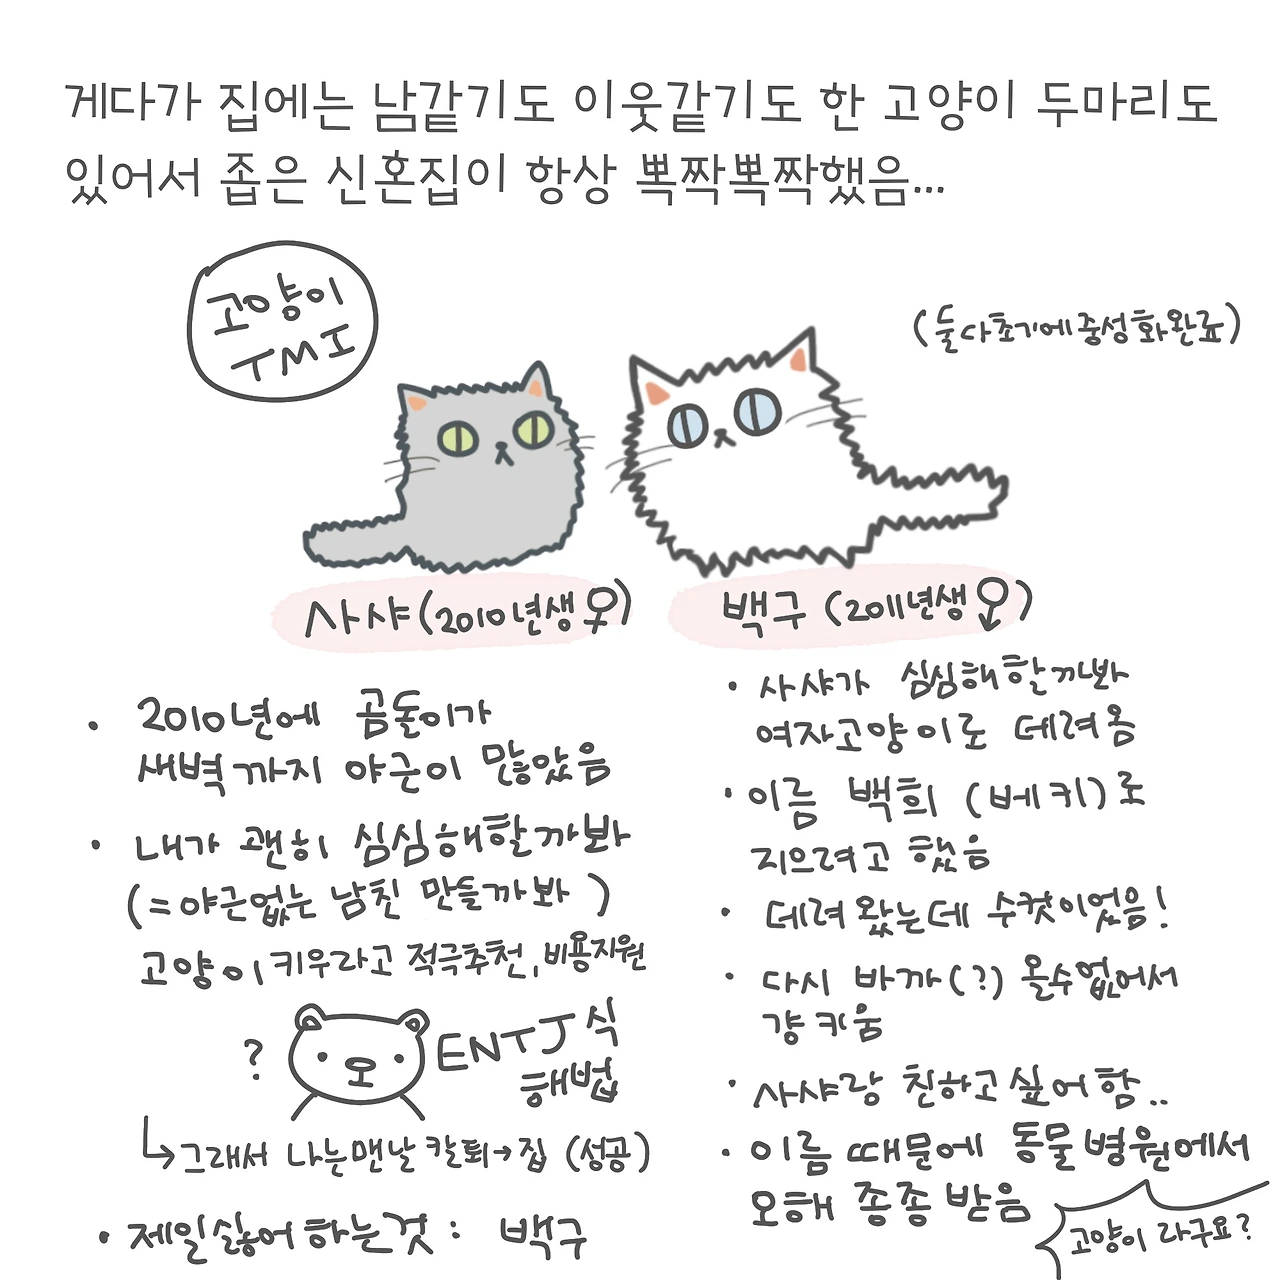 게다가 집에는 남같기도 이웃같기도 한 고양이 두마리도
있어서 좁은 신혼집이 항상 뽁짝뽁짝했음...
고양이
TMI
(둘다초기에중성화완료)
사샤(2010년생♀)
· 2010년에 곰돌이가
새벽까지 야근이 많았음
· 내가 괜히 심심해할까봐
(=야근없는 남친 만들까봐)
고양이키우라고 적극추천, 비용지원
? ENTJ식
해법
↳그래서 나는맨날 칼퇴→집 (성공)
· 제일싫어하는것 : 백구
백구 (2011년생♂)
· 사샤가 심심해할까봐
여자고양이로 데려옴
· 이름 백희 (베키)로
지으려고 했음
· 데려왔는데 수컷이었음!
· 다시 바까(?) 올수없어서
걍 키움
· 사샤랑 친하고싶어함..
· 이름 때문에 동물병원에서
오해 종종 받음
고양이 라구요?